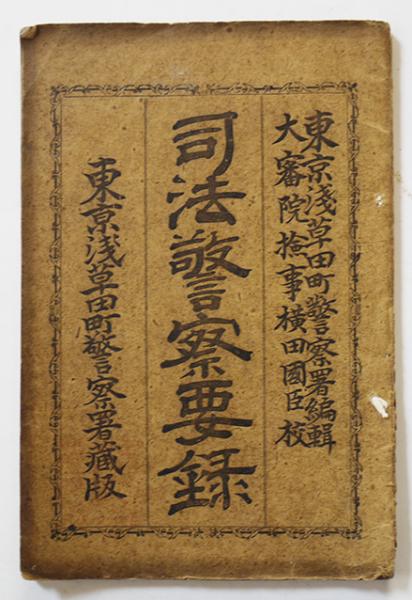 東京淺草田町警察署編輯
大審院撿事橫田國臣校
司法警察要録
東京淺草田町警察署藏版